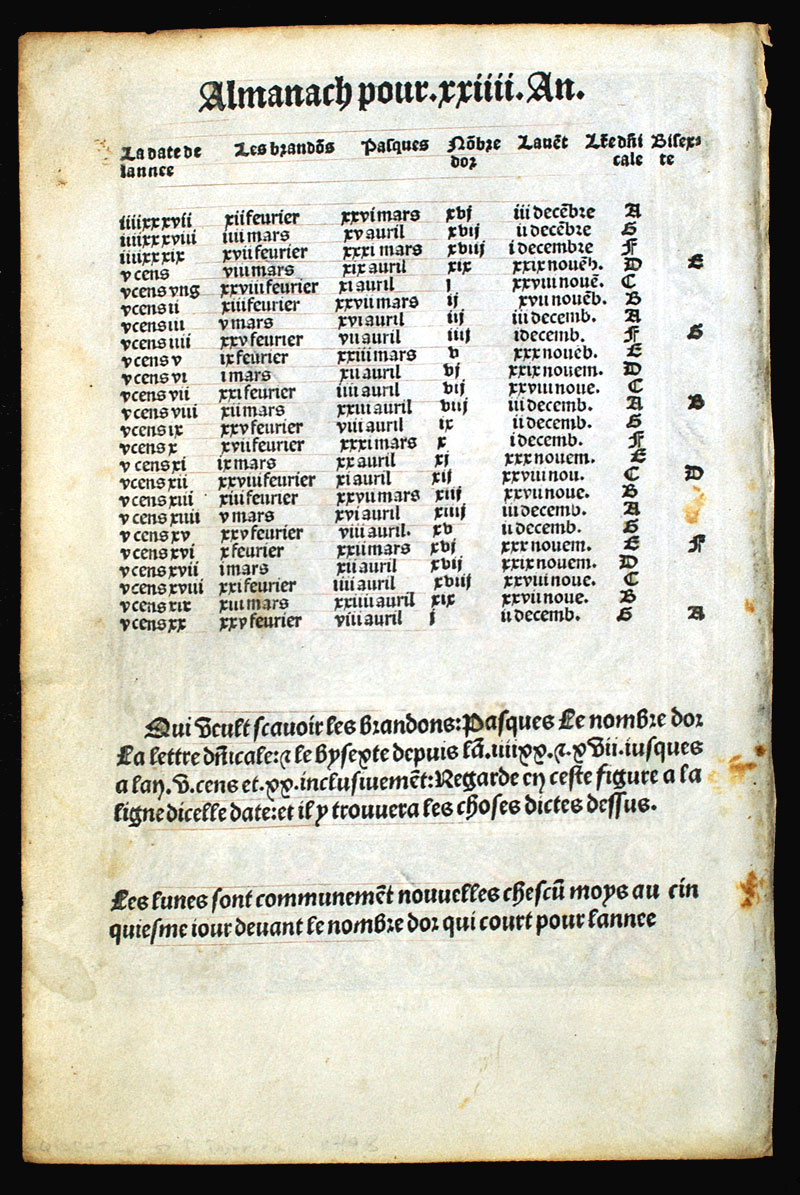 Almanach pour.xxiiii.An.
La date de lannee Les brandõs Pasques Nõbre dor Lauẽt Lr̃e dñicale Bisexte
iiiixxxvii xii feurier xxvi mars xvj iii decẽbre A
iiiixxxviii iiii mars xv auril xvij ii decẽbre G
iiiixxxix xvii feurier xxxi mars xviij i decembre F
v cens viii mars xix auril xix xxix nouẽb. D E
v cens vng xxviii feurier xi auril j xxviii nouẽ. C
v cens ii xiii feurier xxvii mars ij xvii nouẽb. B
v cens iii v mars xvi auril iij iii decemb. A
v cens iiii xxv feurier vii auril iiij i decemb. F G
v cens v ix feurier xxiii mars v xxx nouẽb. E
v cens vi i mars xii auril vj xxix nouem. D
v cens vii xxi feurier iiii auril vij xxviii noue. C
v cens viii xii mars xxiii auril viij iii decemb. A B
v cens ix xxv feurier viii auril ix ii decemb. G
v cens x xvii feurier xxxi mars x i decemb. F
v cens xi ix mars xx auril xj xxx nouem. E
v cens xii xxviii feurier xi auril xij xxviii nou. C D
v cens xiii xiii feurier xxvii mars xiij xxvii noue. B
v cens xiiii v mars xvi auril xiiij iii decemb. A
v cens xv xxv feurier viii auril. xv ii decemb. G
v cens xvi x feurier xxii mars xvj xxx nouem. E F
v cens xvii i mars xii auril xvij xxix nouem. D
v cens xviii xxi feurier iiii auril xviij xxviii noue. C
v cens xix xiii mars xxiiii auril xix xxvii noue. B
v cens xx xxv feurier viii auril j ii decemb. G A
Qui veult scauoir les brandons:Pasques Le nombre dor
La lettre dñicale:⁊ le bysexte depuis lã.iiiixx.⁊.xvii.iusques
a lan.v.cens et.xx.inclusiuemẽt:Regarde en ceste figure a la
ligne dicelle date:et il y trouuera les choses dictes dessus.
Les lunes sont communemẽt nouuelles chescũ moys au cin
quiesme iour deuant le nombre dor qui court pour lannee